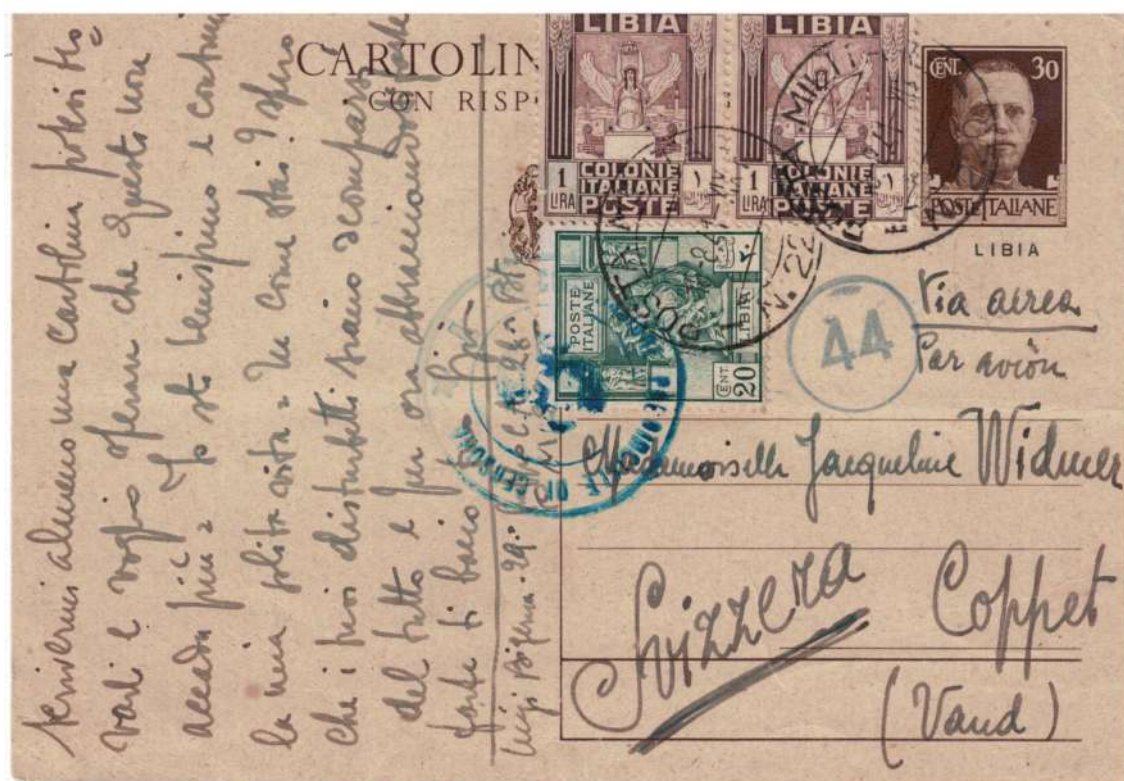 CARTOLIN
CON RISP
LIBIA
COLONIE
ITALIANE
POSTE
1
LIRA
١
LIBIA
COLONIE
ITALIANE
POSTE
1
LIRA
١
CENT. 30
POSTE ITALIANE
LIBIA
POSTE
ITALIANE
LIBIA
CENT
20
٢٠
POSTA MILIT
POSTA MILIT
N. 22
CENSURA
44
Via aerea
Par avion
Mademoiselle Jacqueline Widmer
Svizzera
Coppet
(Vaud)
scrivermi almeno una cartolina potevi
e voglio sperare che questo non
accada più = Io sto benissimo e continuo
la mia solita vita = Tu come stai? Spero
che i tuoi disturbetti siano scomparsi
del tutto e per ora abbracciandoti
forte ti bacio tuo
Luigi
29